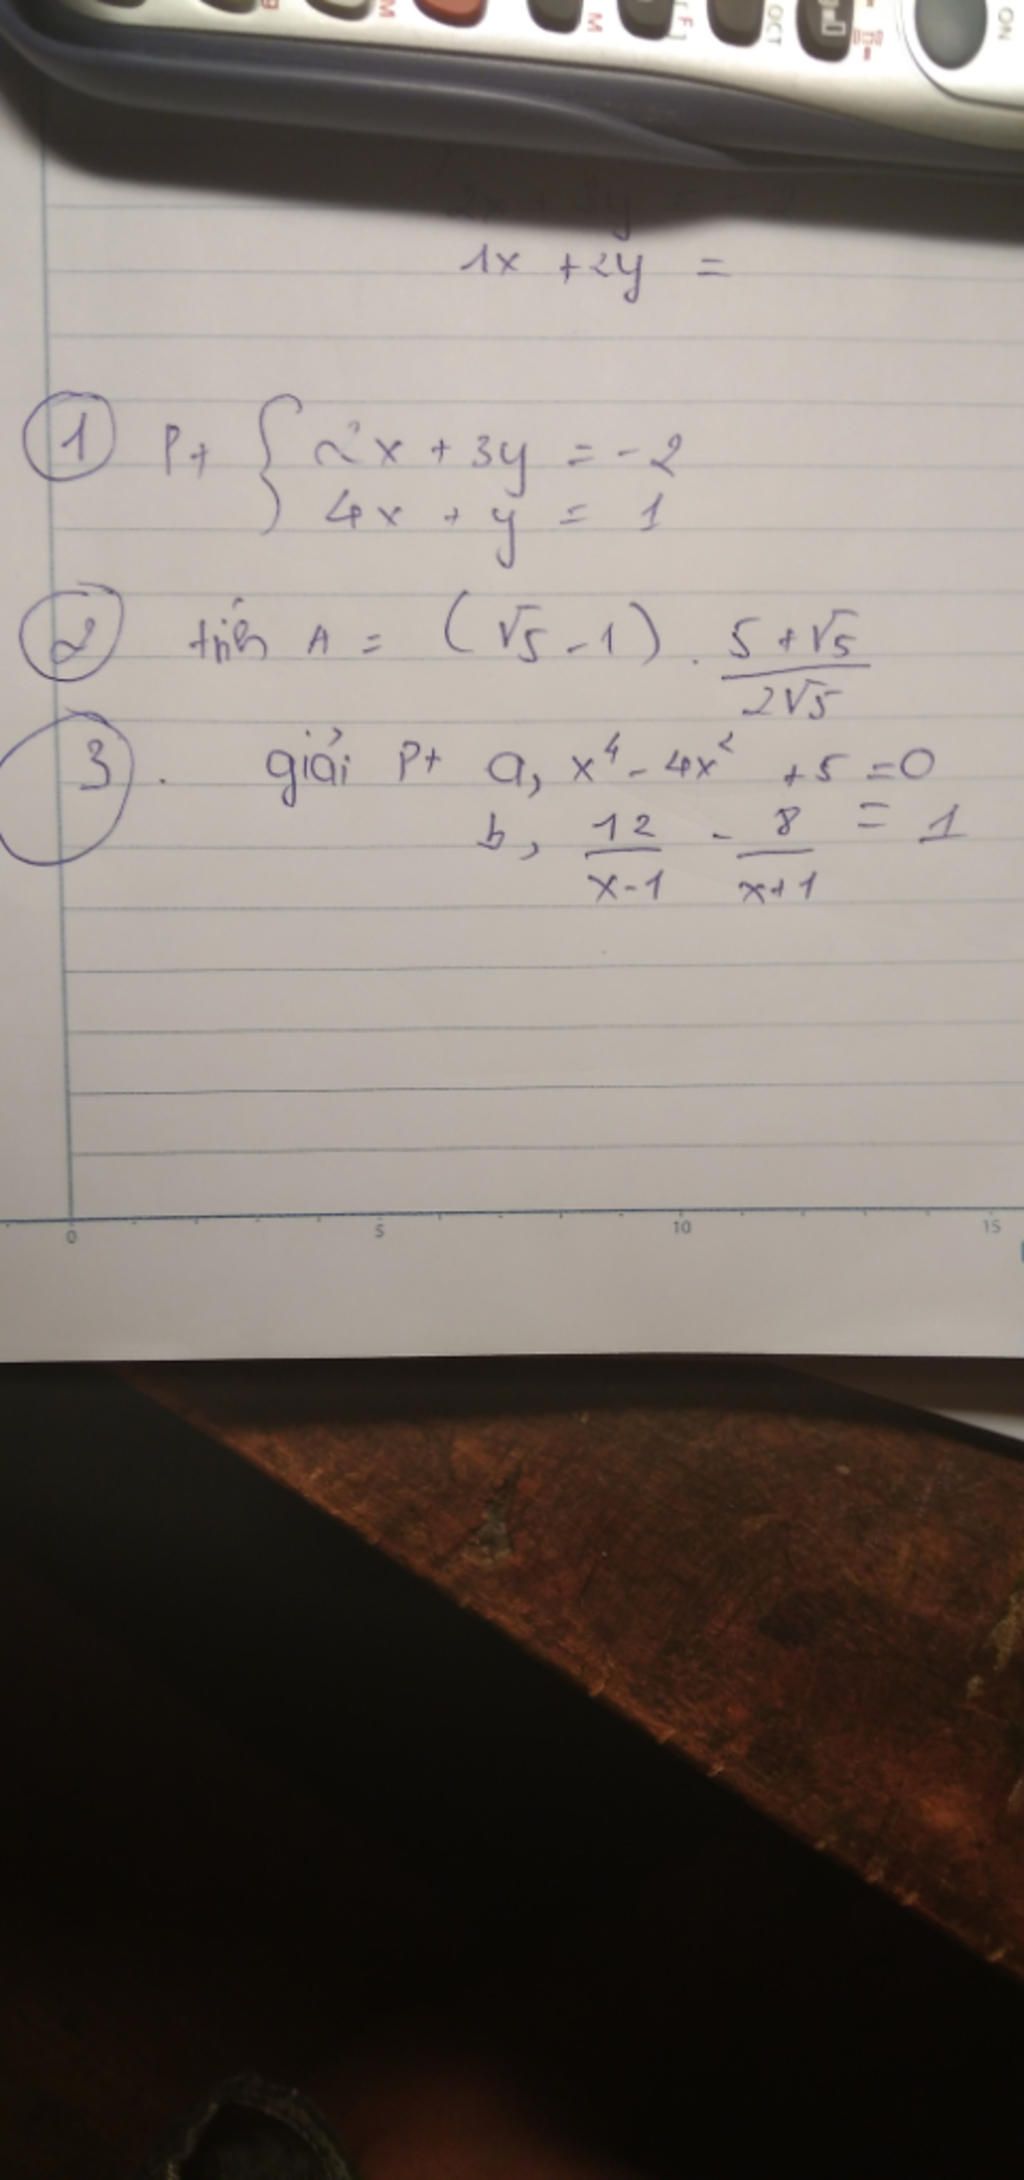 M M [F] OCT ON
1x + 2y =
① Pt { 2x + 3y = -2
4x + y = 1
② tính A = (√5 - 1) . (5 + √5)/(2√5)
③ . giải Pt a, x⁴ - 4x² + 5 = 0
b, 12/(x-1) - 8/(x+1) = 1
0 5 10 15